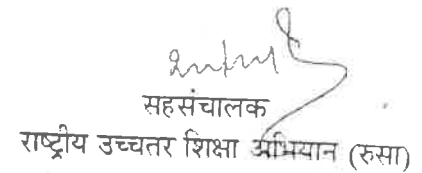 सहसंचालक
राष्ट्रीय उच्चतर शिक्षा अभियान (रुसा)